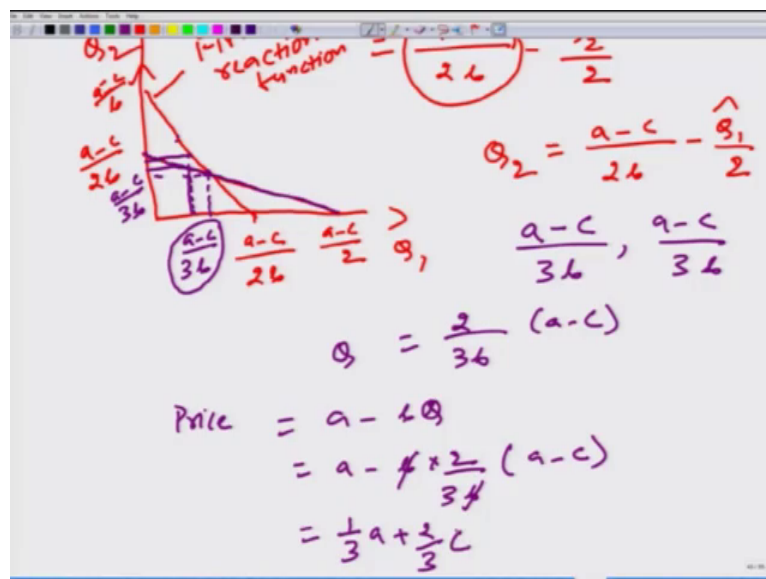 Q2
reaction
function
= 2b - 2
a-c/b
Q2 = a-c/2b - Q̂1/2
a-c/2b
a-c/3b
a-c/3b a-c/2b a-c/2 Q1
a-c/3b , a-c/3b
Q = 2/3b (a-c)
Price = a - bQ
= a - b × 2/3b (a-c)
= 1/3 a + 2/3 c